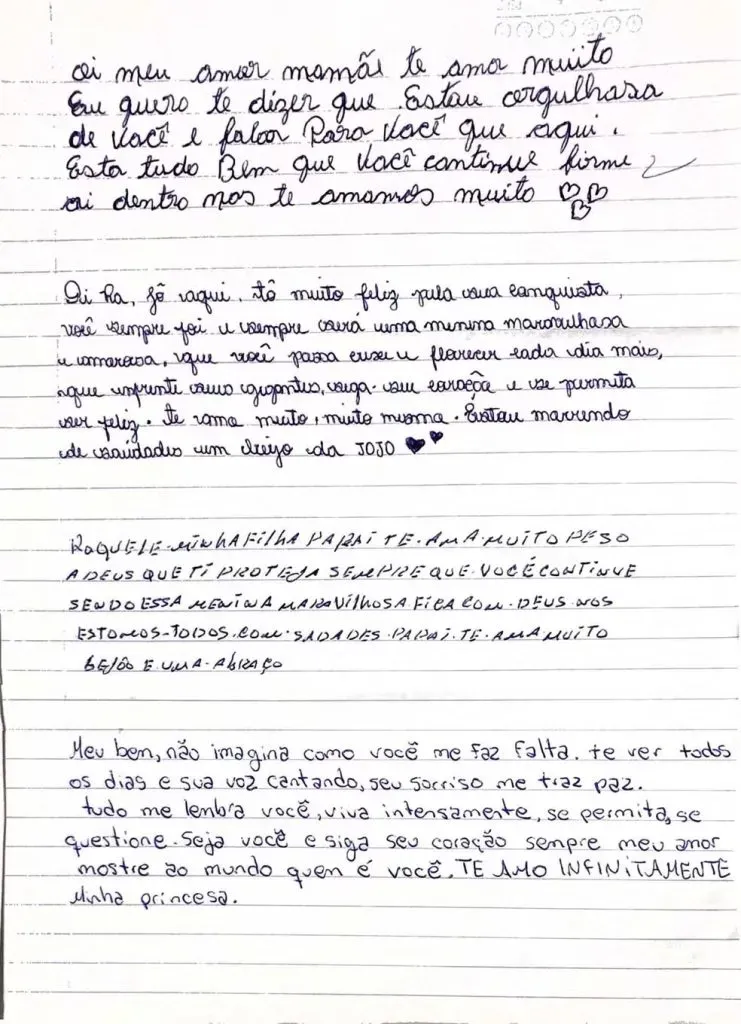 oi meu amor mamãe te amor muiito
Eu quero te dizer que Estou orgulhosa
de você e falar Para você que aqui.
Esta tudo Bem que você continue firme
ai dentro nos te amamos muito
Oi Ra, Jô aqui, tô muito feliz pela sua conquista,
você sempre foi e sempre será uma menina maravilhosa
e amorosa, que você possa crescer e florecer cada dia mais,
que enfrente seus gigantes, siga seu coração e se permita
ser feliz. te amo muito, muito mesmo. Estou morrendo
de saudades um beijo da JOJO
RAQUELE MINHA FILHA PAPAI TE AMA MUITO PESO
A DEUS QUE TI PROTEJA SEMPRE QUE VOCÊ CONTINUE
SENDO ESSA MENINA MARAVILHOSA FICA COM DEUS NOS
ESTOMOS TODOS COM SADADES PAPAI TE AMA MUITO
BEJÃO E UMA ABRAÇO
Meu bem, não imagina como você me faz falta. te ver todos
os dias e sua voz cantando, seu sorriso me traz paz.
tudo me lembra você, viva intensamente, se permita, se
questione. Seja você e siga seu coração sempre meu amor
mostre ao mundo quem é você. TE AMO INFINITAMENTE
Minha princesa.